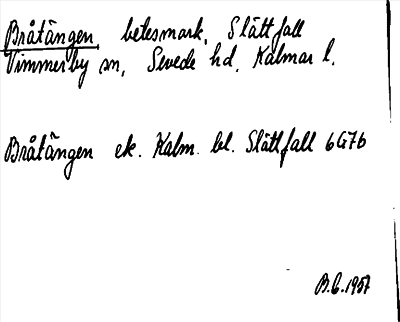 Bråtängen, betesmark, Slättfall
Vimmerby sn, Sevede hd, Kalmar l.
Bråtängen ek. Kalm. bl. Slättfall 6G7b
B.G. 1957